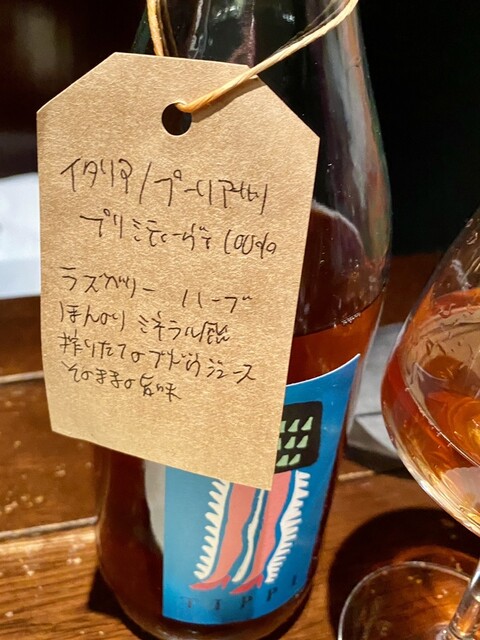 イタリア/プーリア州
プリミティーヴォ 100%
ラズベリー ハーブ
ほんのり ミネラル感
搾りたてのブドウジュース
そのままの旨味
TIPPI